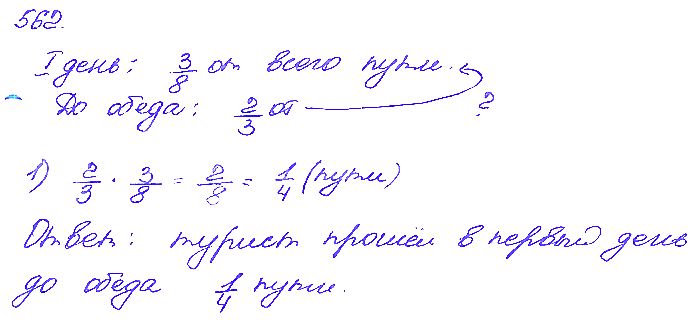 562.
I день: 3/8 от всего пути.
До обеда: 2/3 от ?
1) 2/3 · 3/8 = 2/8 = 1/4 (пути)
Ответ: турист прошёл в первый день
до обеда 1/4 пути.